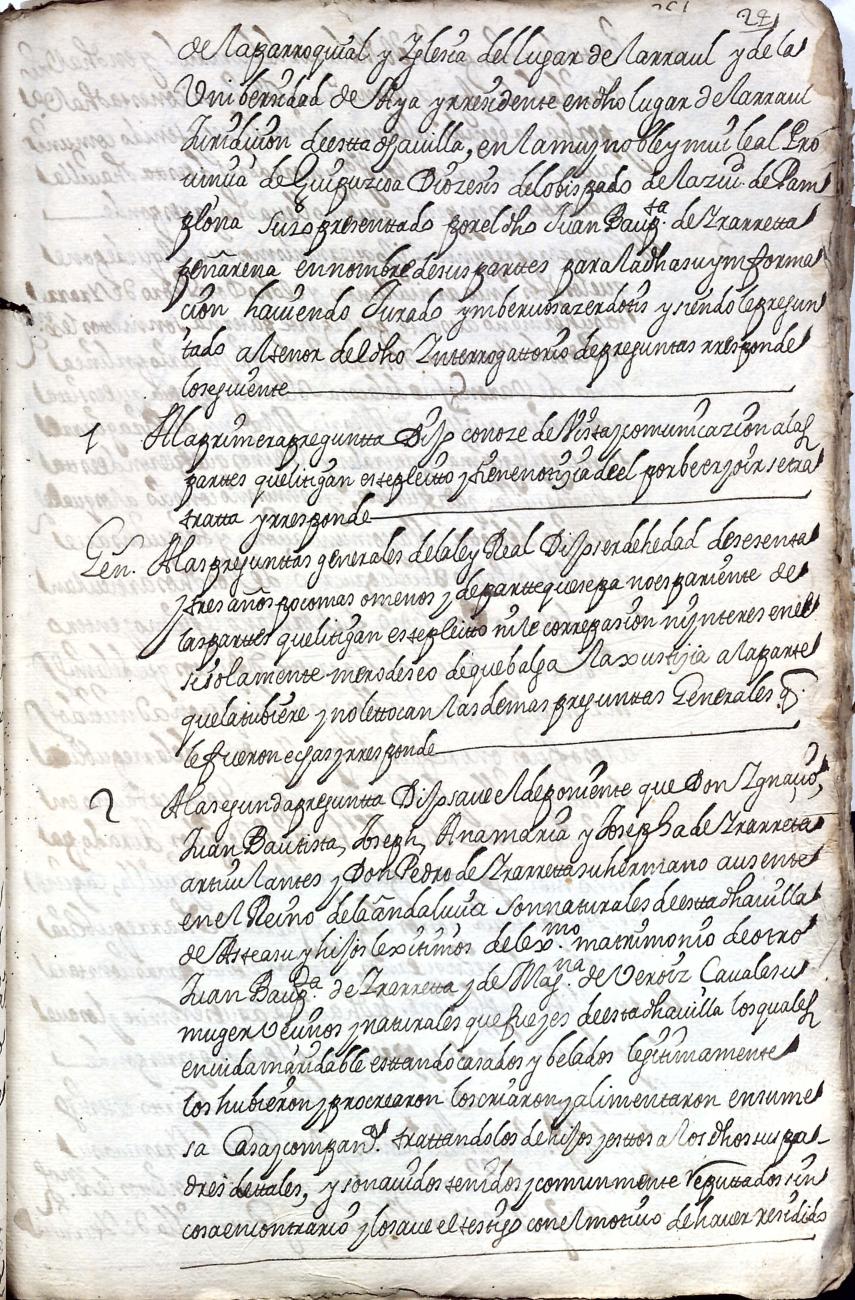 24
de la parroquial y Iglesia del lugar de larraul y de la
Vniberssidad de Aya y rresidente en dho lugar de larraul
Juridicion de estta dha uilla, en la muy noble y mui leal Pro
uinçia de Guipuzcoa Diozesis del obispado de la ziud. de Pam
plona su 8º presenttado por el dho Juan Baupta. de Yrarretta
peñarena en nombre de sus parttes para la dha su ynforma
cion hauiendo Jurado yn beruo sazerdotis y siendole pregun
tado al tenor del dho Ynterrogattorio de preguntas rresponde
lo siguiente
1 A la primera preguntta Dijo conoze de Vista y comunicazion a las
parttes que litigan este pleitto y tiene notiçia de el por ber y oir se tra
tratta y rresponde
Gen. A las preguntas generales de la ley Real Dijo ser de hedad de sesenta
y tres años poco mas o menos y de partte que sepa no es pariente de
las parttes que litigan este pleitto ni le corre pasion ni ynteres en el
si solamente mero deseo de que balga la xusttiçia a la parte
que la tubiere y no le ttocan las demas preguntas Generales q.
le fueron echas y rresponde
2 A la segunda preguntta Dijo saue el deponiente que Don Ygnaçio,
Juan Bautista, Joseph, Ana maria y Josepha de Yrarreta
articulantes y Don Pedro de Yrarretta su hermano ausente
en el Reino de la andaluçia son naturales de estta dha uilla
de Asteasu y hijos lexitimos de lexmo. matrimonio de otro
Juan Baupta. de Yrarretta y de Magna. de Veroiz Caualasu
muger Veçinos y naturales que fueron de esta dha uilla los quales
en uida maridable estando casados y belados legitimamente
los hubieron y procrearon los criaron y alimentaron en su me
sa Casa y compañia. trattandolos de hijos y esttos a los dhos sus pa-
dres de ttales, y son auidos tenidos y comunmente rreputtados sin
cosa en contrario y lo saue el testigo con el motiuo de hauer residido